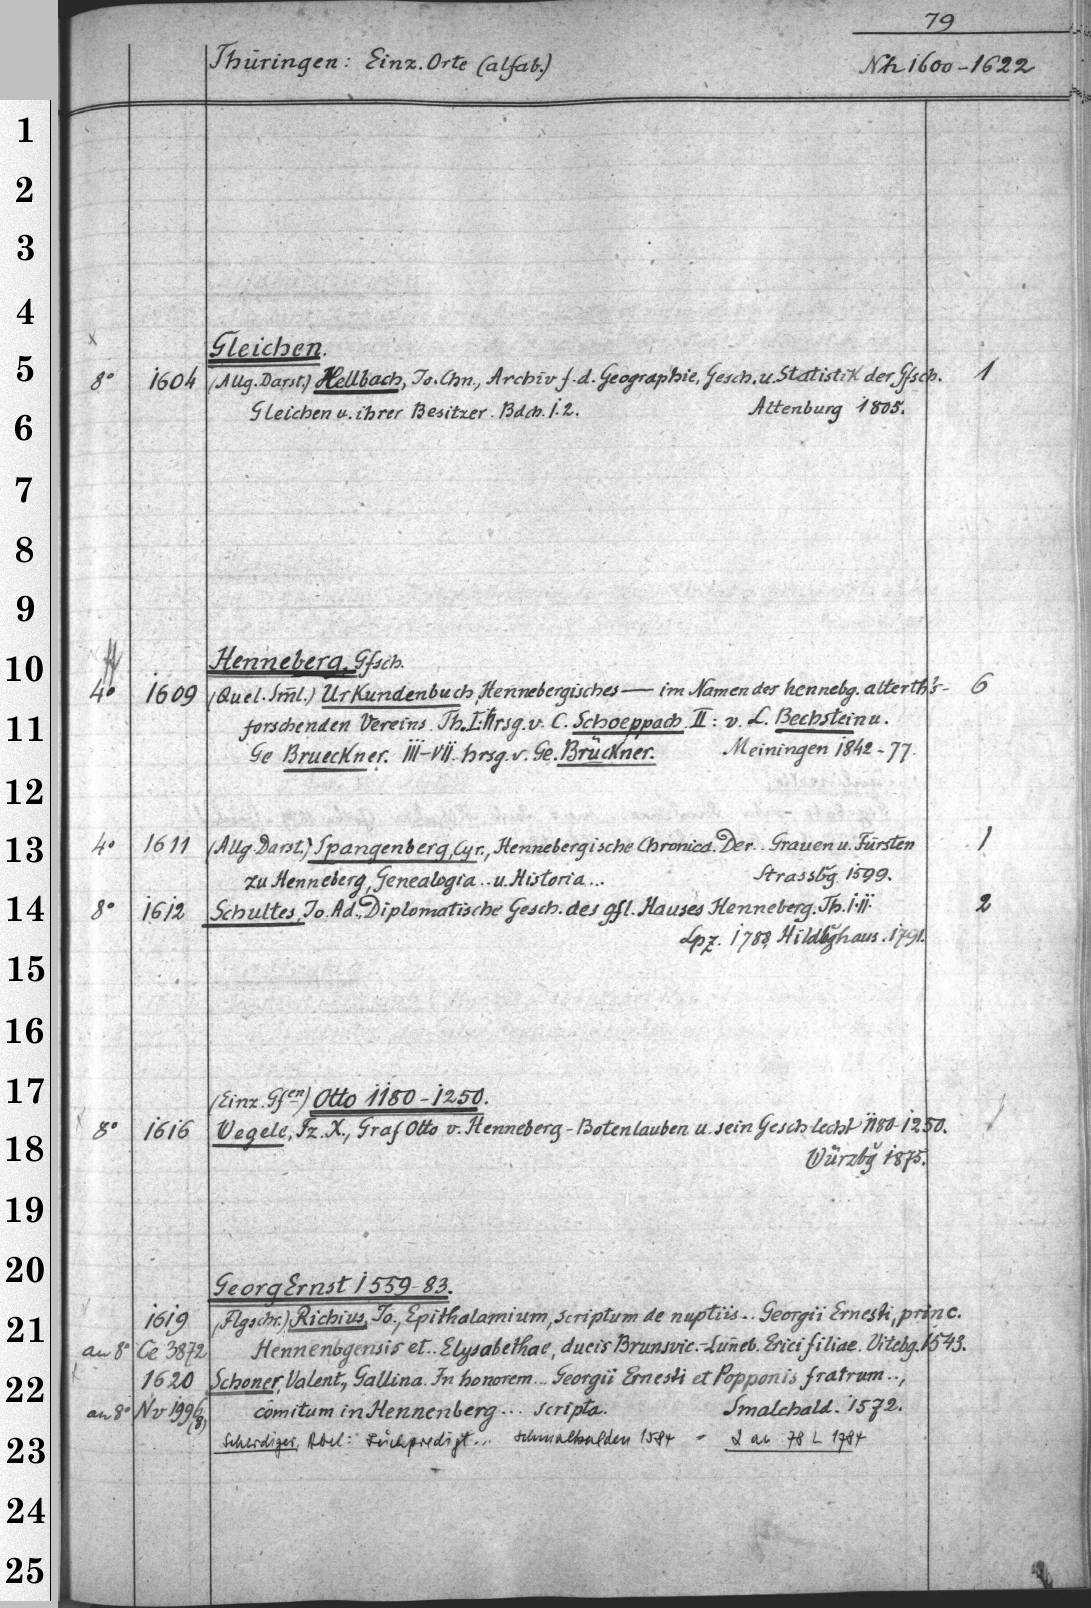 79
Thüringen: Einz. Orte (alfab.) Nh 1600-1622
1
2
3
4
Gleichen.
5
8° 1604 (Allg. Darst.) Hellbach, Jo. Chn., Archiv f. d. Geographie, Gesch. u. Statistik der Gfsch. 1
Gleichen u. ihrer Besitzer. Bdch. 1.2. Altenburg 1805.
6
7
8
9
10
Henneberg. Gfsch.
4° 1609 (Quel. Sml.) Urkundenbuch, Hennebergisches — im Namen der hennebg. alterth's- 6
11
forschenden Vereins. Th. I: Hrsg. v. C. Schoeppach. II: v. L. Bechstein u.
Ge Brueckner. III-VII. hrsg. v. Ge. Brückner. Meiningen 1842-77.
12
13
4° 1611 (Allg. Darst.) Spangenberg, Cyr., Hennebergische Chronica. Der.. Grauen u. Fürsten 1
zu Henneberg, Genealogia.. u. Historia... Strassbg 1599.
14
8° 1612 Schultes, Jo. Ad., Diplomatische Gesch. des gfl. Hauses Henneberg. Th. I.II. 2
Lpz. 1788, Hildbghaus. 1791.
15
16
17
(Einz. Gfen) Otto 1180-1250.
8° 1616 Wegele, Fz. X., Graf Otto v. Henneberg-Botenlauben u. sein Geschlecht 1180-1250.
18
Würzbg 1875.
19
20
Georg Ernst 1559-83.
1619 (Flgschr.) Richius, Jo., Epithalamium, scriptum de nuptiis.. Georgii Ernesti, princ.
21
an 8° Ce 3872 Hennenbgensis et.. Elysabethae, ducis Brunsvic.-Luneb. Erici filiae. Vitebg. 1543.
1620 Schoner, Valent., Gallina. In honorem... Georgii Ernesti et Popponis fratrum..,
22
an 8° Nv 1996 (8) comitum in Hennenberg... scripta. Smalchald. 1572.
Scherdiger, Abel: Leichpredigt... Schmalkalden 1584 - 2 an 78 L 1784
23
24
25